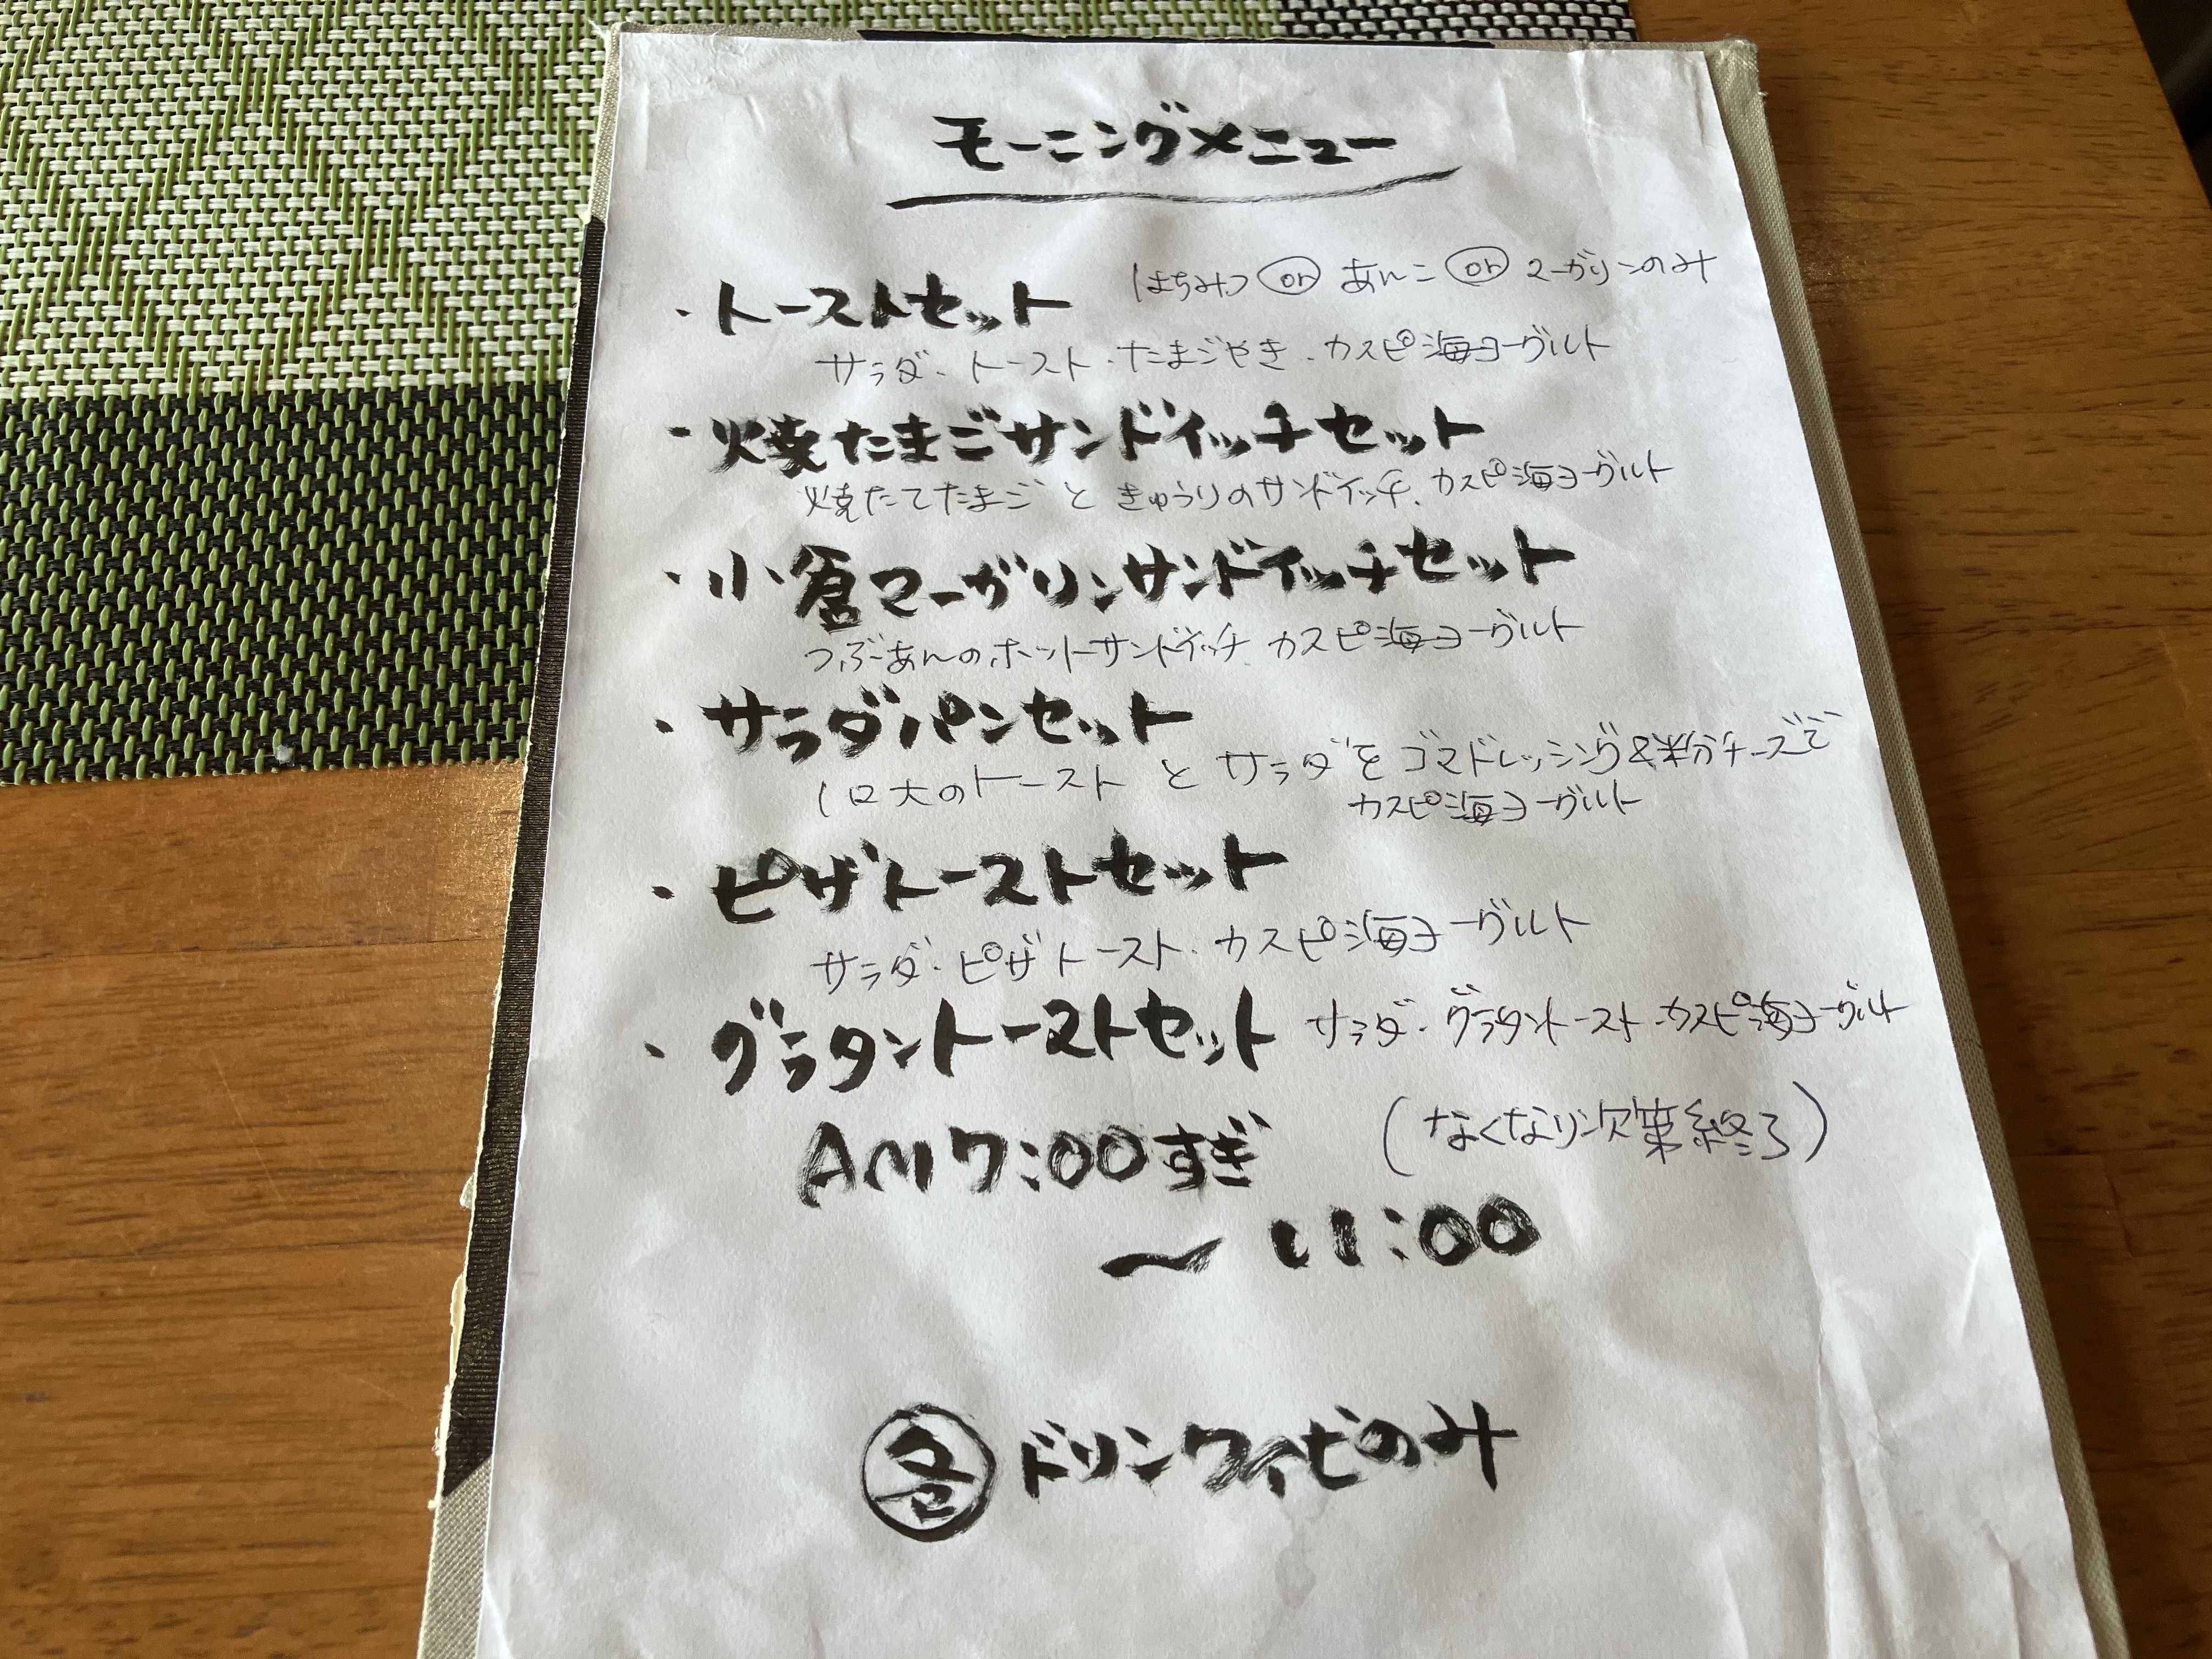 モーニングメニュー
・トーストセット はちみつ or あんこ or マーガリンのみ
サラダ・トースト・たまごやき・カスピ海ヨーグルト
・焼たまごサンドイッチセット
焼たてたまごときゅうりのサンドイッチ、カスピ海ヨーグルト
・小倉マーガリンサンドイッチセット
つぶあんのホットサンドイッチ カスピ海ヨーグルト
・サラダパンセット
1口大のトーストとサラダをゴマドレッシング&粉チーズで
カスピ海ヨーグルト
・ピザトーストセット
サラダ・ピザトースト・カスピ海ヨーグルト
・グラタントーストセット サラダ・グラタントースト・カスピ海ヨーグルト
AM7:00すぎ (なくなり次第終了)
〜11:00
各 ドリンク代のみ